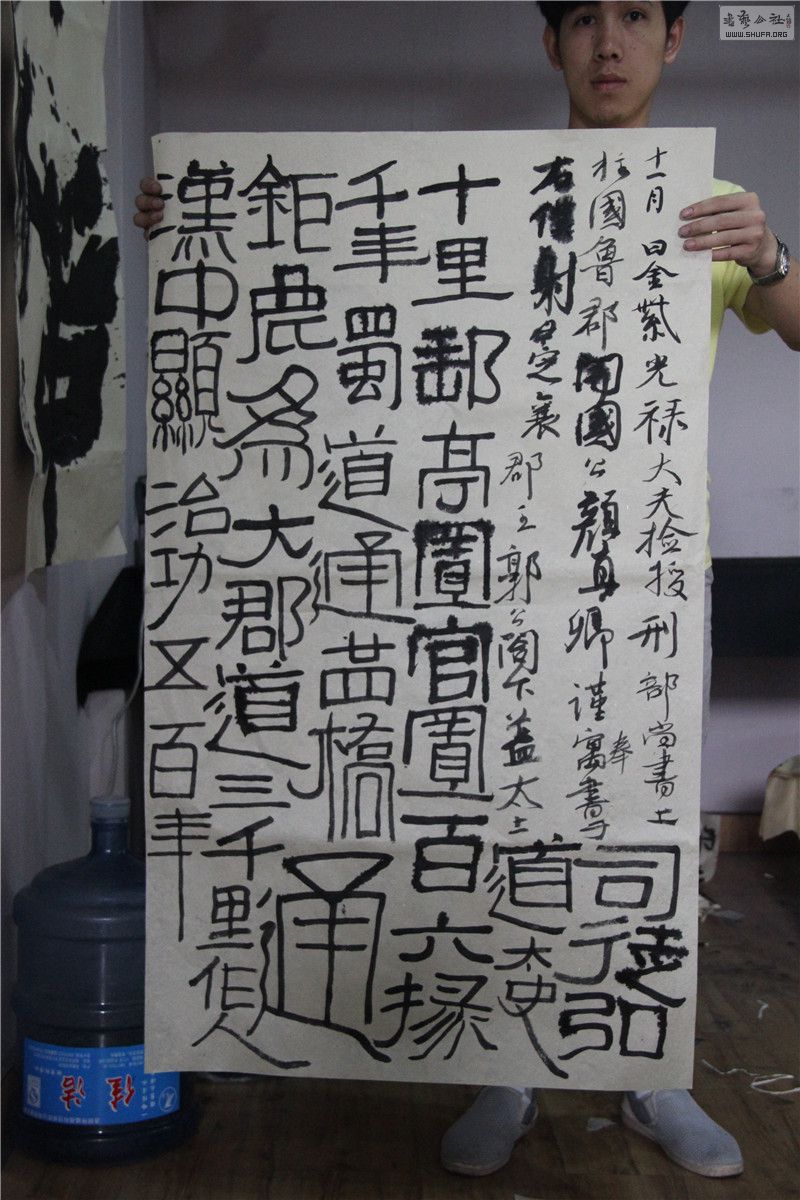 十一月日金紫光禄大夫捡挍刑部尚書上
柱國魯郡開國公顏真卿謹寓書于
奉
右僕射定襄郡王郭公閣下蓋太上
司徒弘
道太史
十里郵亭置官置百六掾
千年蜀道通苗橋
通
鉅鹿為大郡道三千里作人
漢中顯治功五百年
書藝公社
WWW.SHUFA.ORG
佳洁